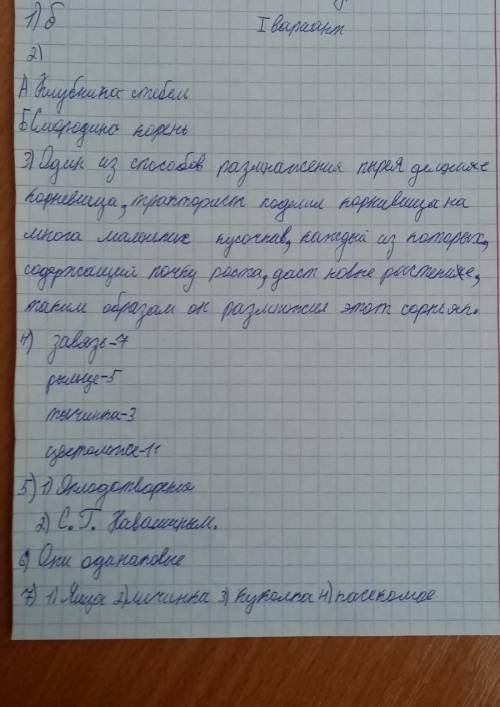 1) б I вариант
2)
А Клубника стебель
Б Смородина корень
3) Один из способов размножения пырея
корневища, тракторист поделил корнивища на
много маленьких кусочков, каждый из которых,
содержащий почку роста, даст новые растение,
таким образам он размножил этот сорняк.
4) завязь-7
рыльце-5
тычинка-3
цветоложе-11
5) 1) Оплодотворение
2) С. Г. Навашиным.
6) Они одинаковые
7) 1) Яйца 2) личинка 3) куколка 4) насекомое